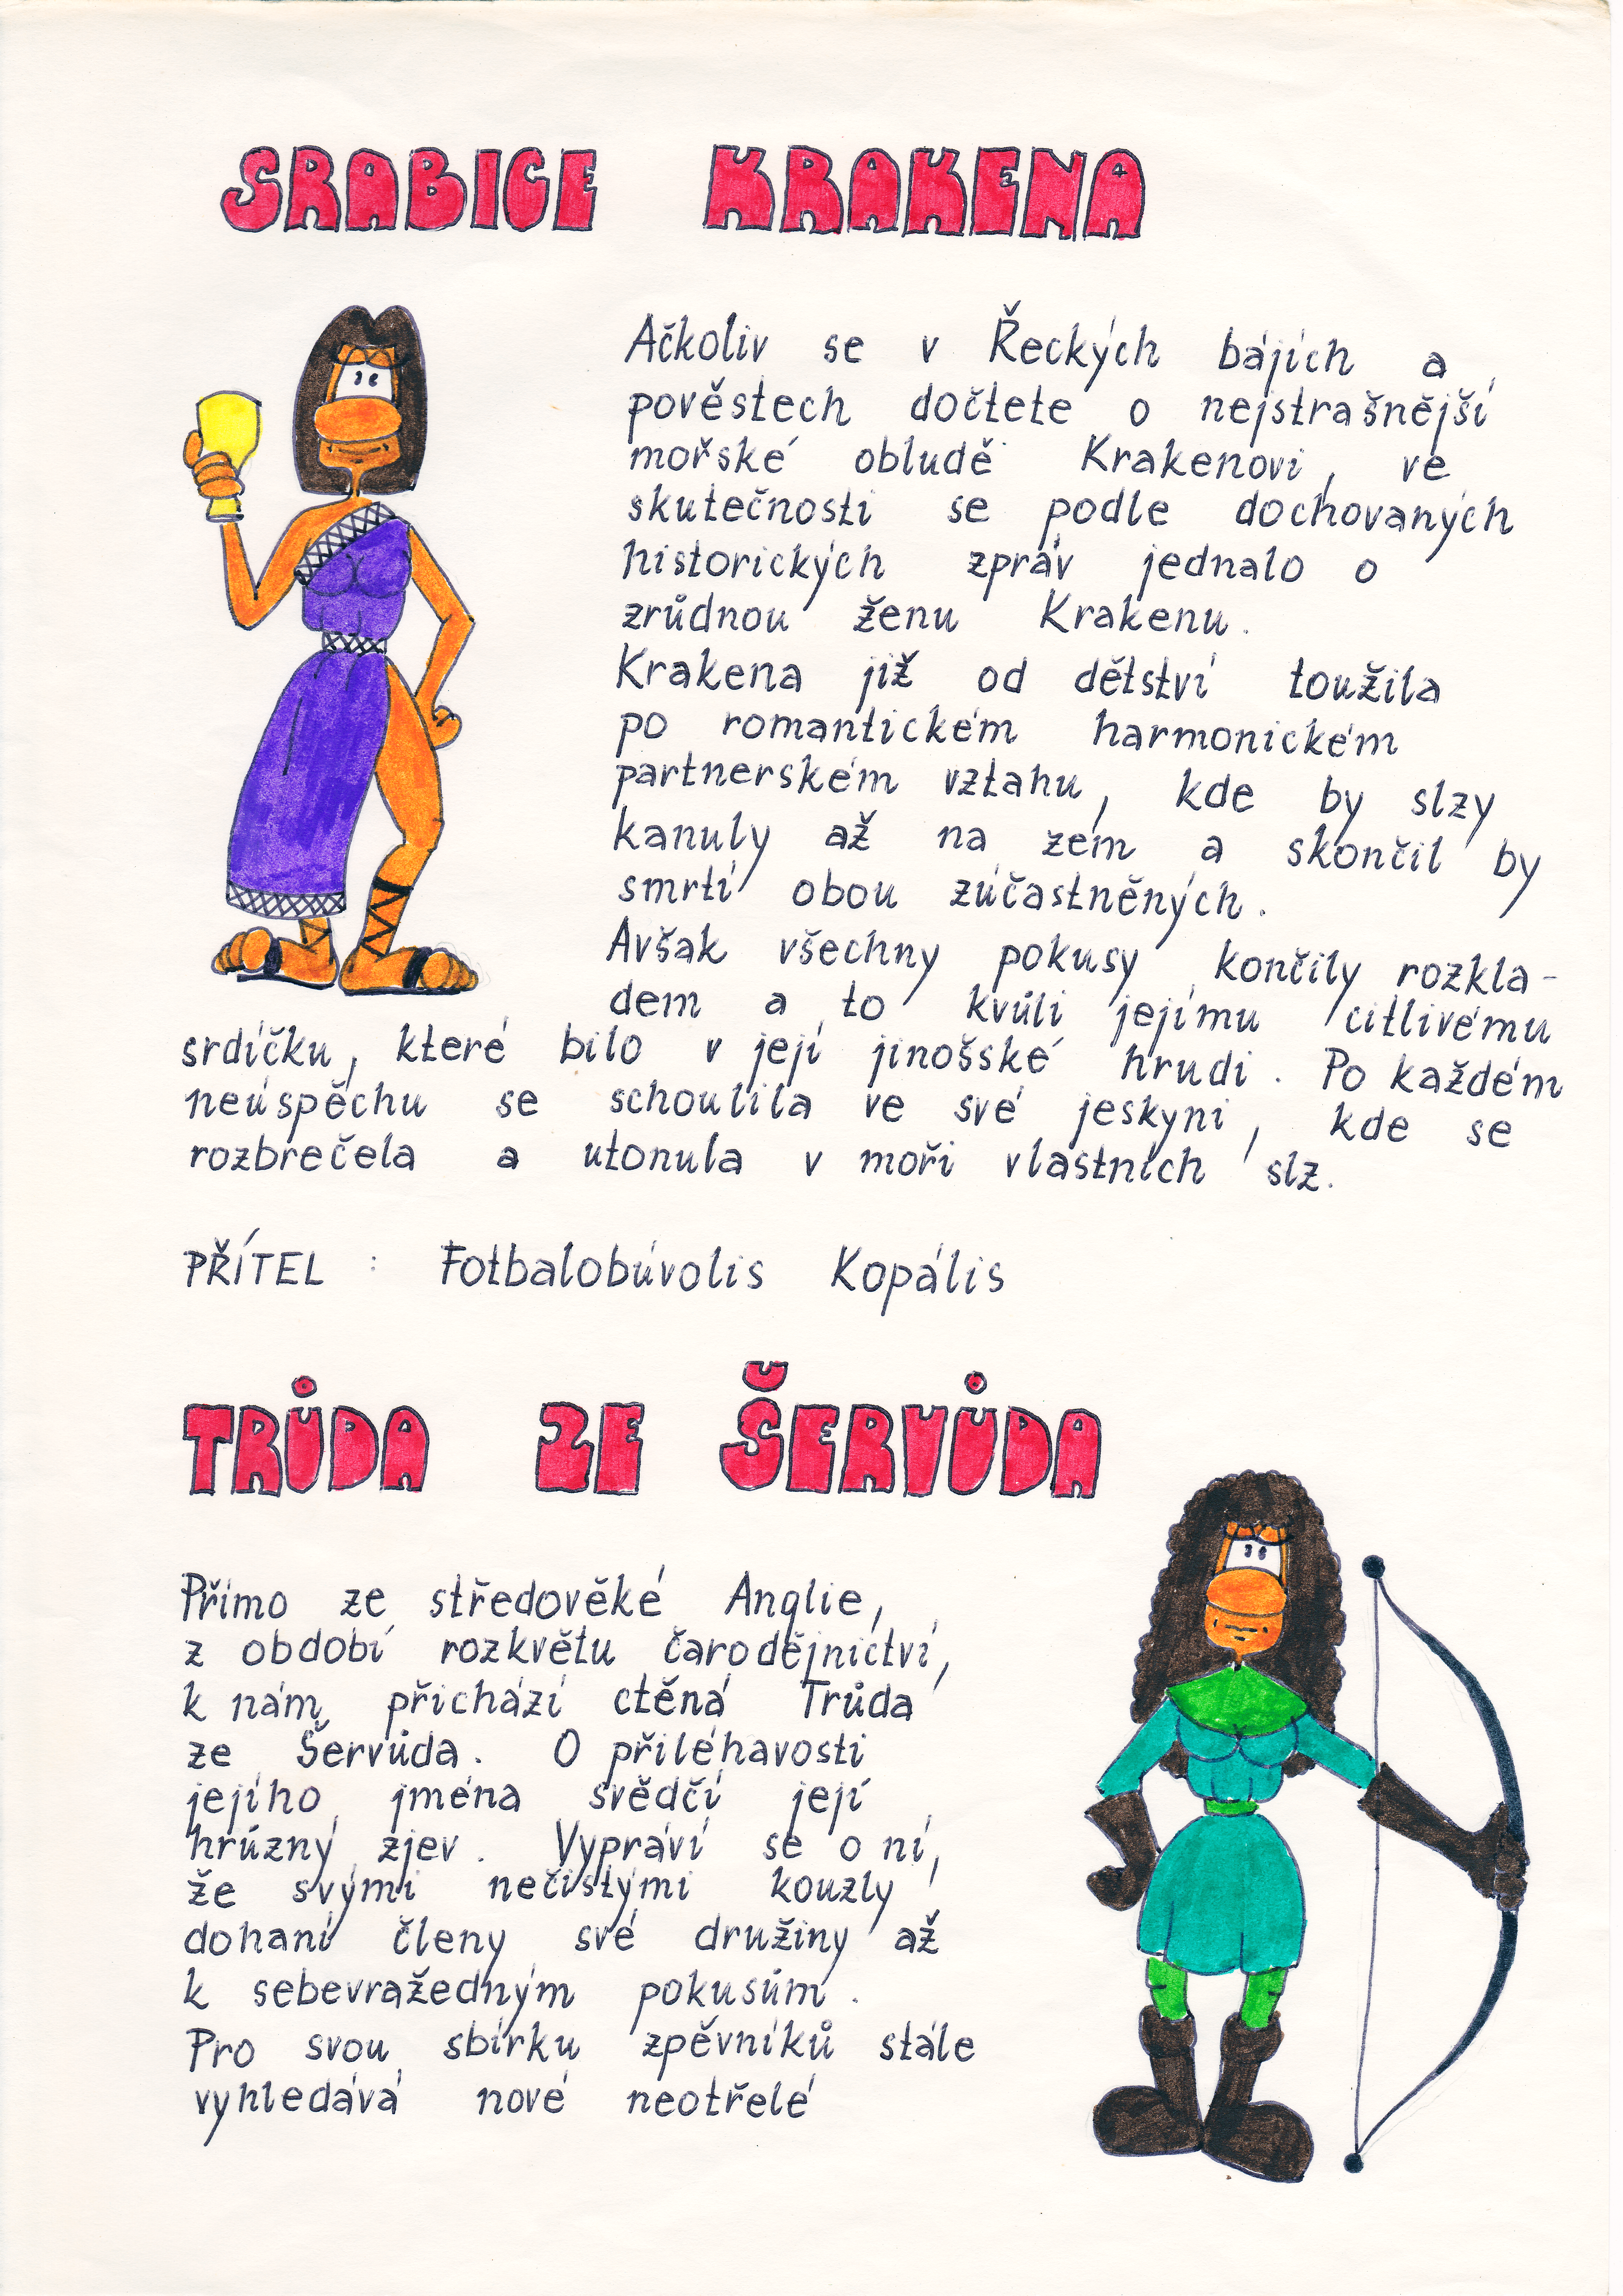 SRABICE KRAKENA
Ačkoliv se v Řeckých bájích a
pověstech dočtete o nejstrašnější
mořské obludě Krakenovi, ve
skutečnosti se podle dochovaných
historických zpráv jednalo o
zrůdnou ženu Krakenu.
Krakena již od dětství toužila
po romantickém harmonickém
partnerském vztahu, kde by slzy
kanuly až na zem a skončil by
smrtí obou zúčastněných.
Avšak všechny pokusy končily rozkla-
dem a to kvůli jejímu citlivému
srdíčku, které bilo v její jinošské hrudi. Po každém
neúspěchu se schoulila ve své jeskyni, kde se
rozbrečela a utonula v moři vlastních slz.
PŘÍTEL : Fotbalobúvolis Kopális
TRŮDA ZE ŠERVŮDA
Přímo ze středověké Anglie,
z období rozkvětu čarodějnictví,
k nám přichází ctěná Trůda
ze Šervůda. O přiléhavosti
jejího jména svědčí její
hrůzný zjev. Vypráví se o ní,
že svými nečistými kouzly
dohání členy své družiny až
k sebevražedným pokusům.
Pro svou sbírku zpěvníků stále
vyhledává nové neotřelé